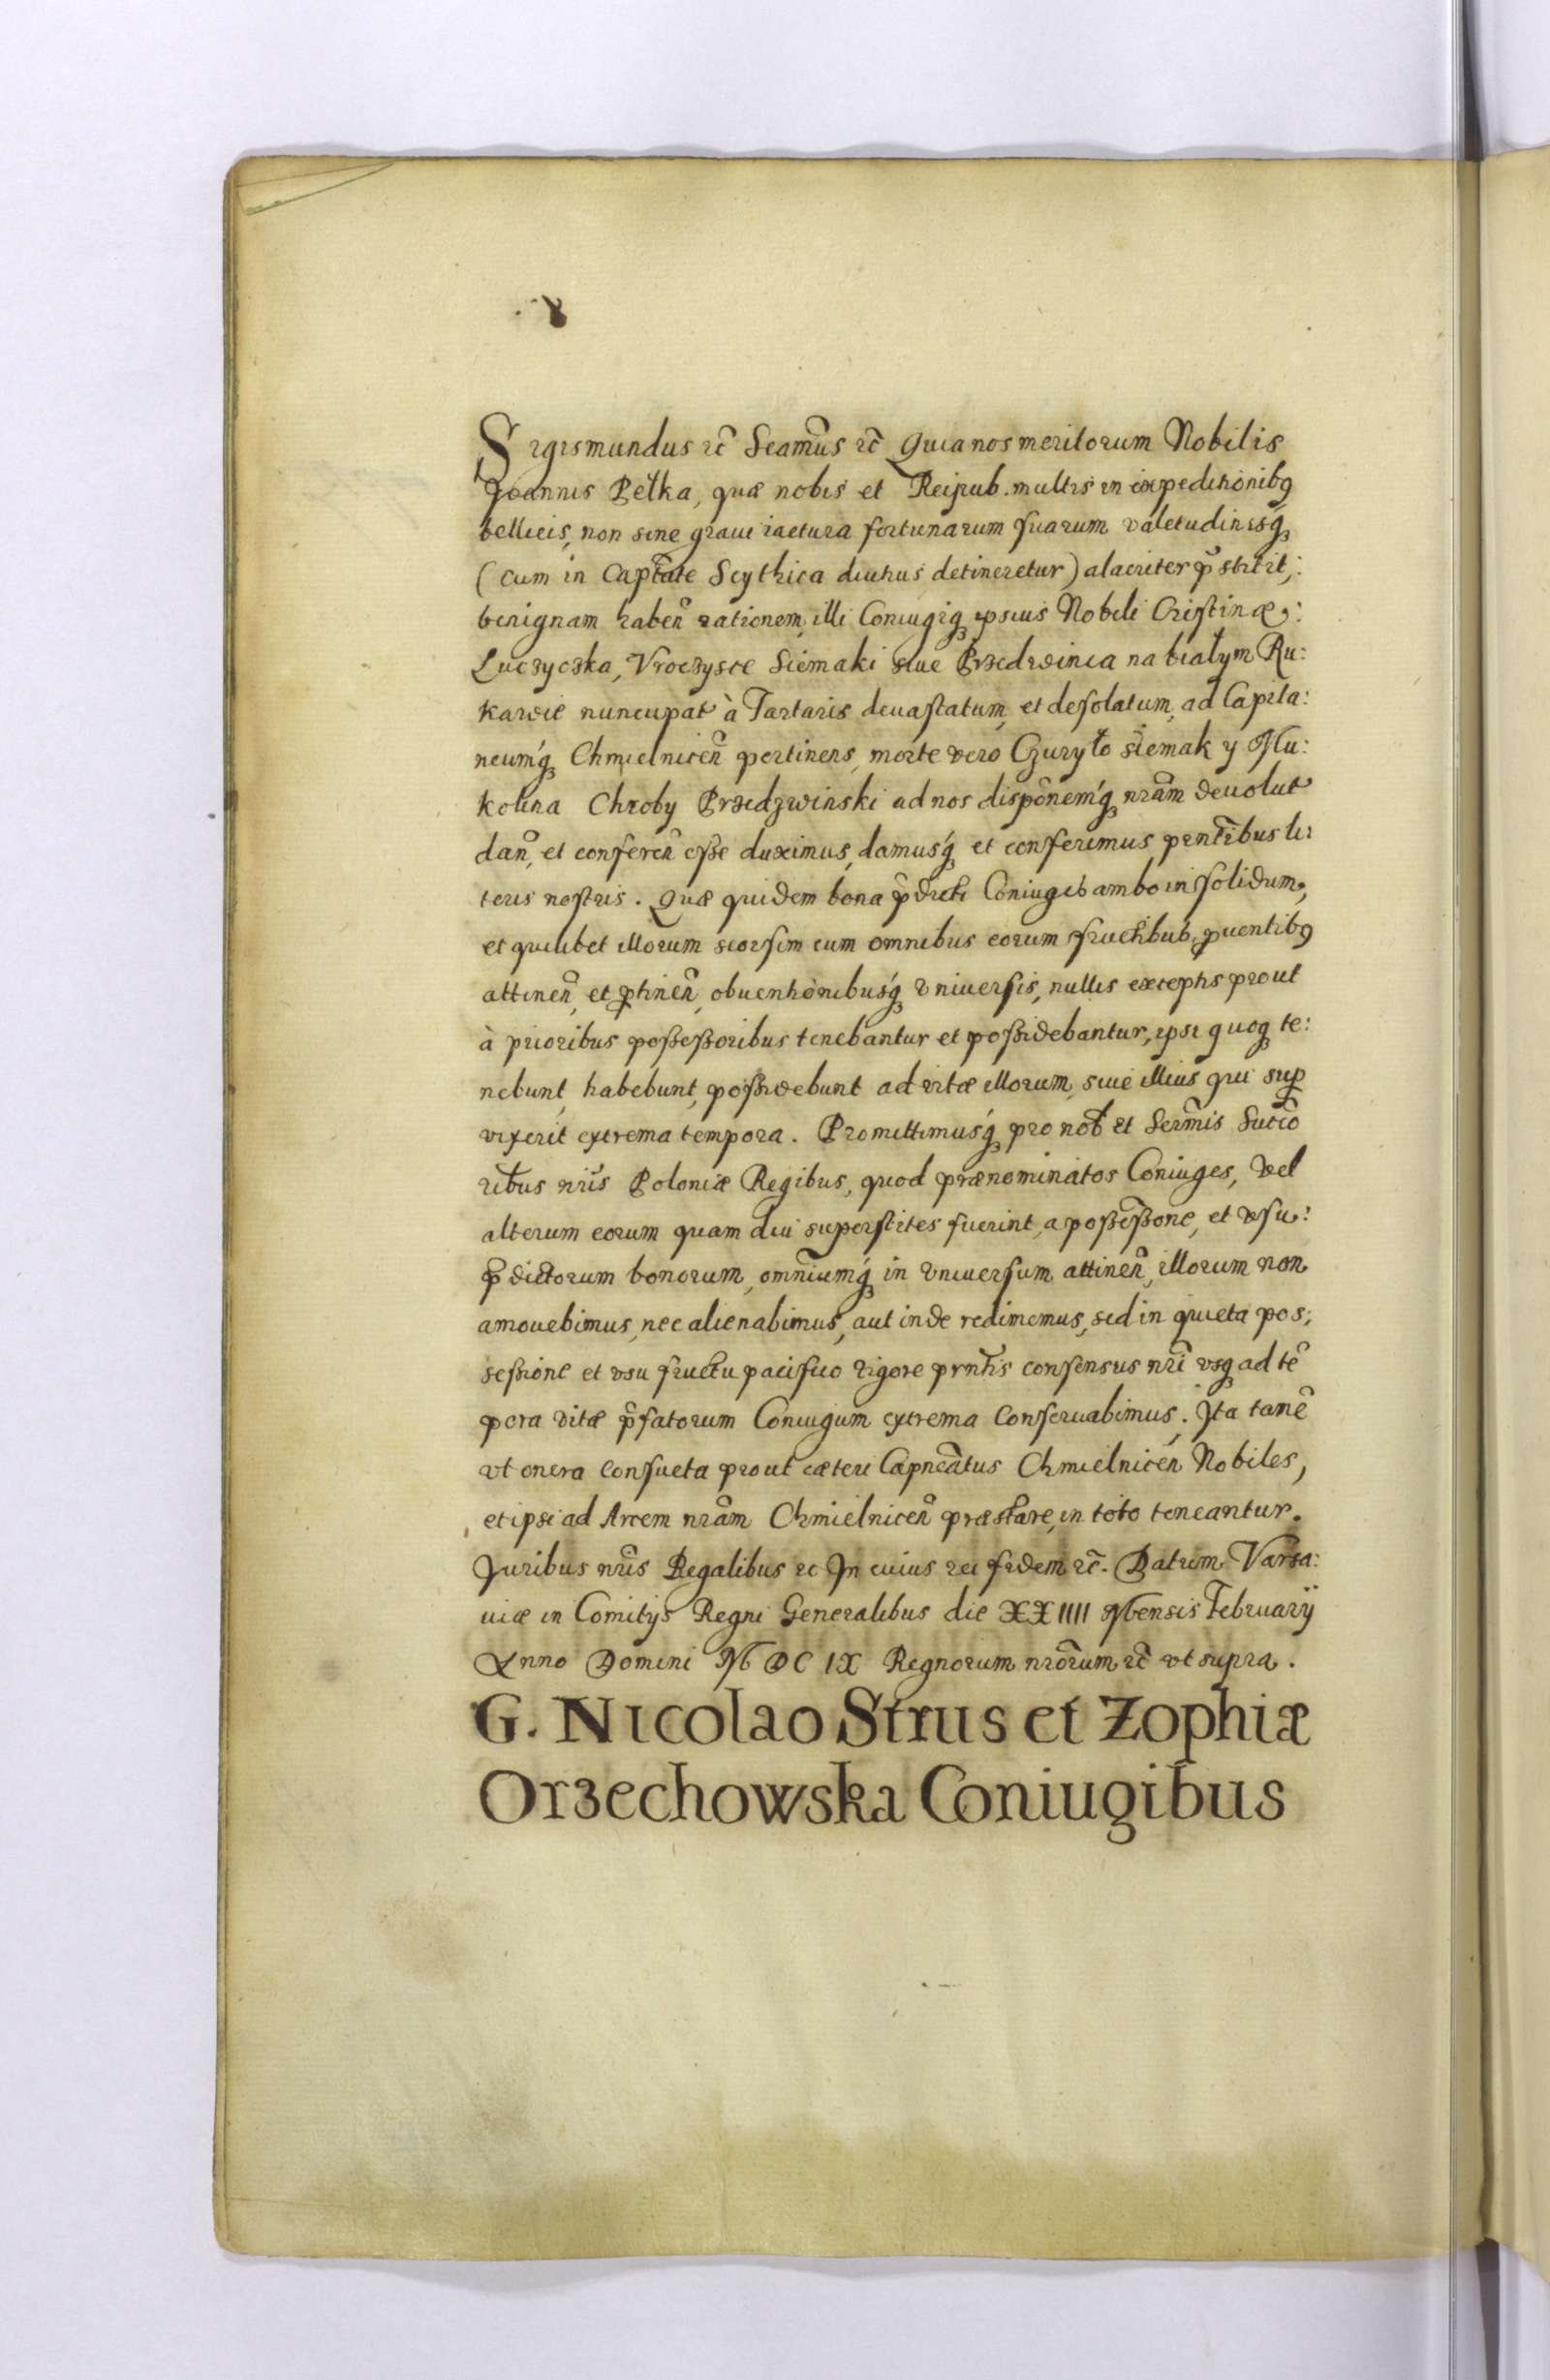 Sigismundus &c̃ Seamũs &c̃ Quia nos meritorum Nobilis
Joannis Pełka, quæ nobis et Reipub. multis in expeditionibꝯ
bellicis, non sine graui iactura fortunarum suarum valetudinisq́ꝫ
(cum in Captãte Scythica diutius detineretur) alacriter p̃stitit,:
benignam habeñ rationem, illi Coniugiqꝫ ipsius Nobili Cristinæ:
Luczyczka, Vroczysce Siemaki siue Przedwinca na białym Ru:
kawie nuncupat à Tartaris deuastatum, et desolatum, ad Capita:
neumq́ꝫ Chmielniceñ pertinens, morte vero Czuryło siemak y Mu:
kolina Chroby Przedzwinski ad nos dispõnemq́ꝫ nrãm deuolut
dañ, et confereñ esse duximus, damusq́ꝫ et conferimus pnñtibus li:
teris nostris. Quæ quidem bona p̃dicti Coniuges ambo in solidum,
et quilibet illorum seorsim cum omnibus eorum fructibus, ꝓuentibꝯ
attineñ, et ꝑtineñ, obuentionibusq́ꝫ vniuersis, nullis exceptis prout
à prioribus possessoribus tenebantur et possidebantur, ipsi quoqꝫ te:
nebunt, habebunt, possidebunt ad vitæ illorum, siue illius qui suꝑ
vixerit extrema tempora. Promittimusq́ꝫ pro nob et Sermis Succo
ribus nris Poloniæ Regibus, quod prænominatos Coniuges, vel
alterum eorum quam diu superstites fuerint, a possessione, et vsu:
p̃dictorum bonorum, omniumq́ꝫ in vniuersum attineñ, illorum non
amouebimus, nec alienabimus, aut inde redimemus, sed in quieta pos:
sessione et vsu fructu pacifico vigore prntis consensus nri vsqꝫ ad tẽ
pora vitæ p̃fatorum Coniugum extrema Conseruabimus. Ita tamẽ
vt onera Consueta prout cæteri Capneãtus Chmielniceñ Nobiles,
et ipsi ad Arcem nrãm Chmielniceñ præstare, in toto teneantur.
Juribus nris Regalibus &c In cuius rei fidem &c̃. Datum Varsa:
uiæ in Comitijs Regni Generalibus die XXIIII Mensis February
Anno Domini M DC IX Regnorum nrorum &c̃ vt supra.
G. Nicolao Strus et Zophiæ
Orzechowska Coniugibus